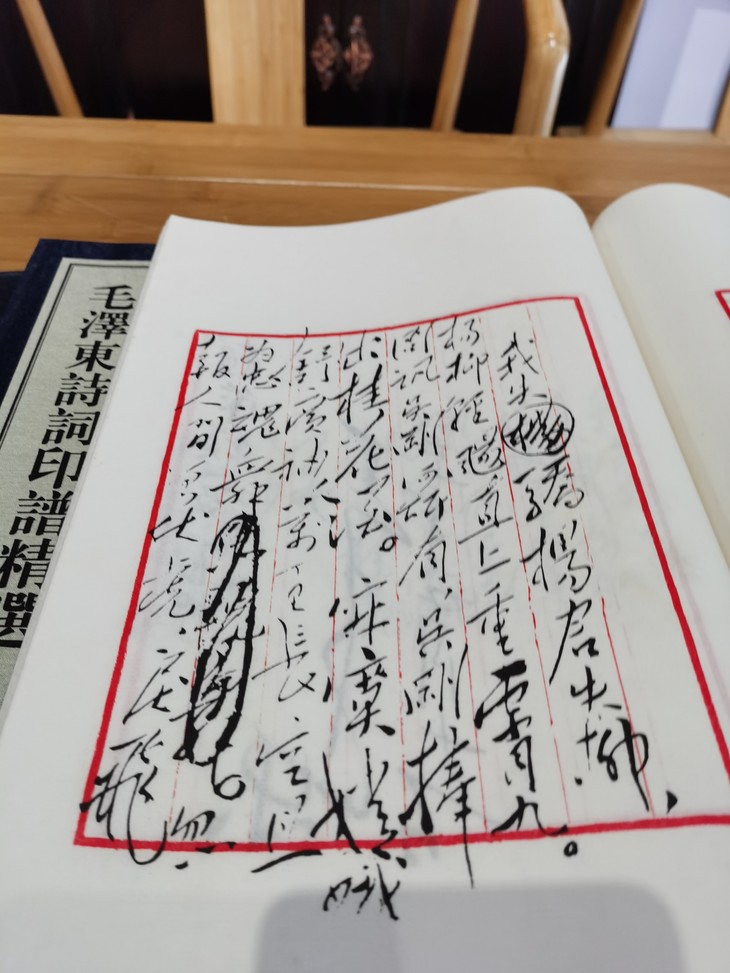 我失驕楊君失柳,
楊柳輕颺直上重霄九。
問訊吳剛何所有,吳剛捧
出桂花酒。寂寞嫦娥
舒廣袖,萬里長空且
為忠魂舞。忽
報人間曾伏虎,淚飛
毛澤東詩詞印譜精選